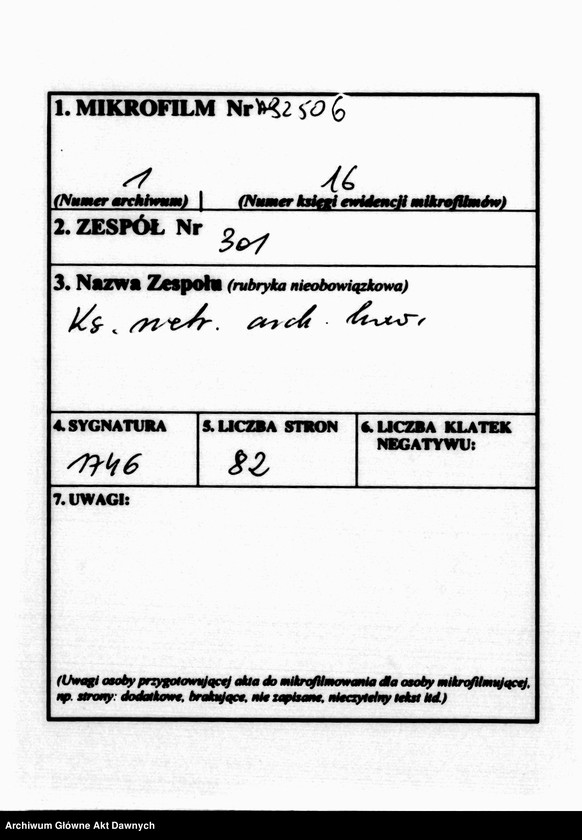 1. MIKROFILM Nr A92506
1 16
(Numer archiwum) (Numer księgi ewidencji mikrofilmów)
2. ZESPÓŁ Nr 301
3. Nazwa Zespołu (rubryka nieobowiązkowa)
Ks. metr. arch.
4. SYGNATURA
1746
5. LICZBA STRON
82
6. LICZBA KLATEK
NEGATYWU:
7. UWAGI:
(Uwagi osoby przygotowującej akta do mikrofilmowania dla osoby mikrofilmującej,
np. strony: dodatkowe, brakujące, nie zapisane, nieczytelny tekst itd.)
Archiwum Główne Akt Dawnych